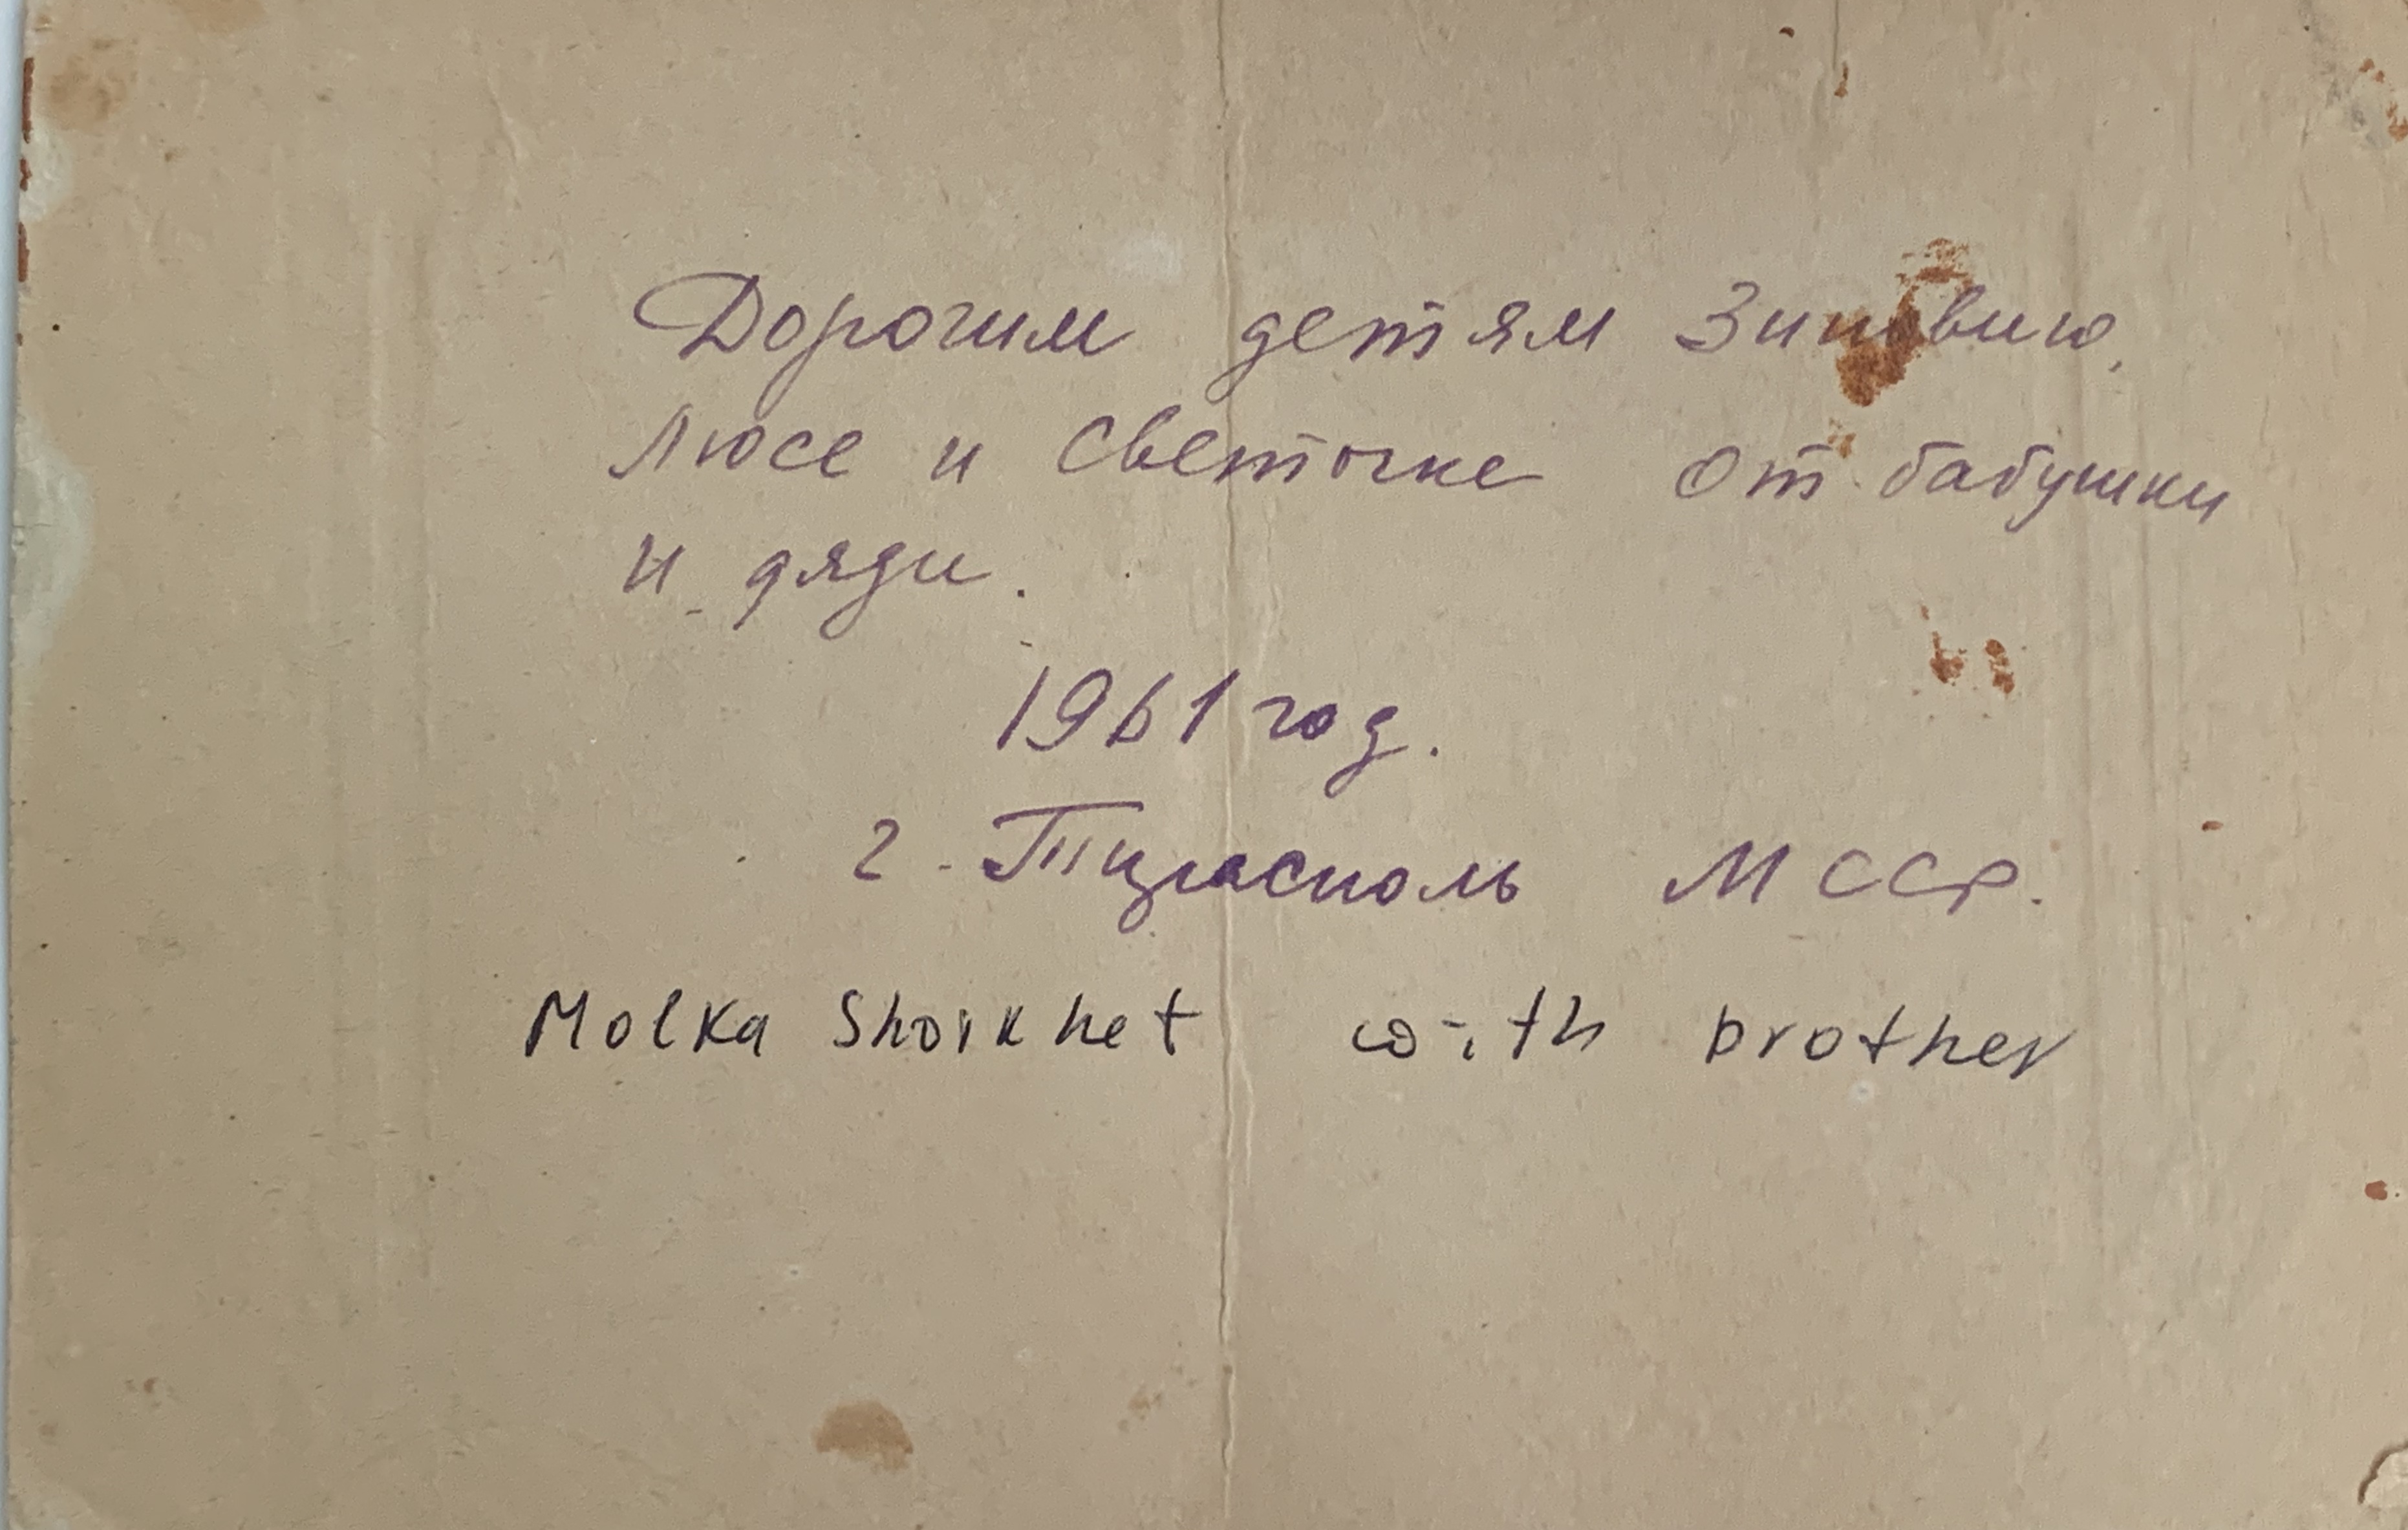 Дорогим детям Зиновию,
Люсе и Светочке от бабушки
и дяди.
1961 год.
г. Тирасполь МССР.
Molka Shoikhet with brother